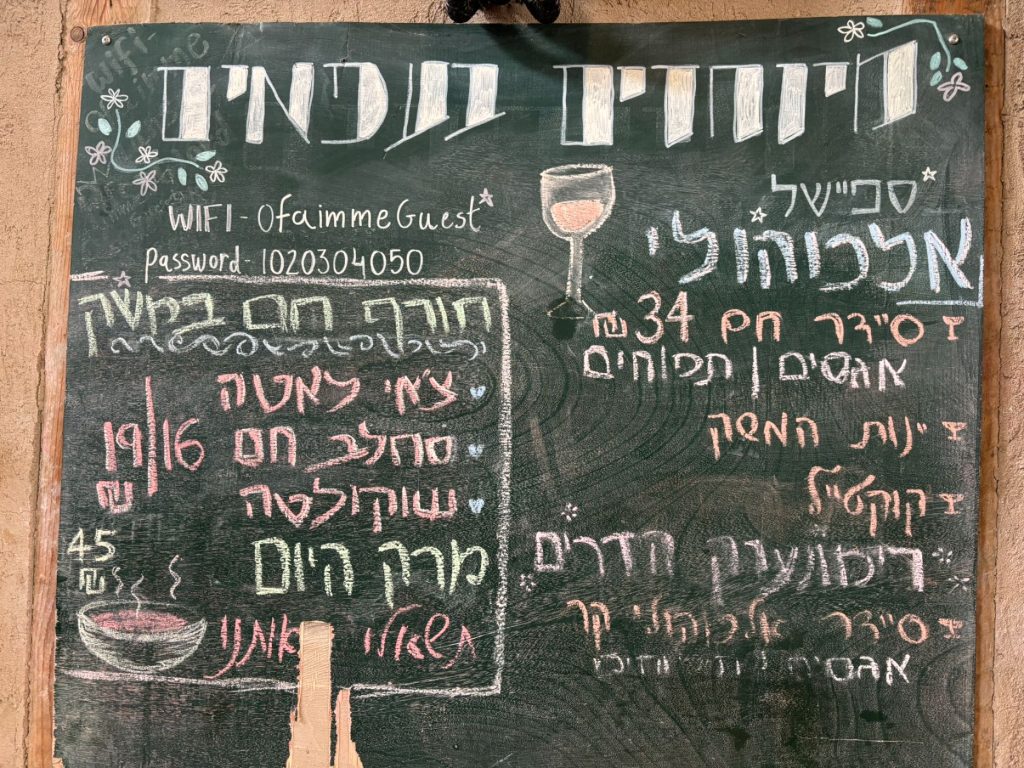 מיוחדים
WIFI - OfaimmeGuest
Password - 1020304050
ספיישל
אלכוהולי
סיידר חם 34 ₪
אגסים | תפוחים
יינות המשק
קוקטייל
רימון/ערק הדרים
סיידר אלכוהולי קר
אגסים
חורף חם במשק
צ'אי לאטה
סחלב חם 16|19 ₪
שוקולטה
מרק היום 45 ₪
תשאלו אותנו